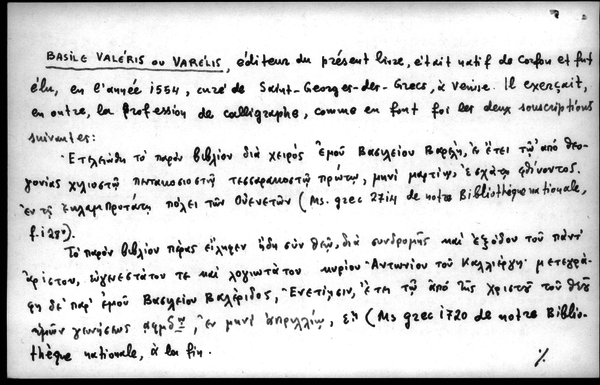 BASILE VALÉRIS OU VARÉLIS, éditeur du présent livre, était natif de Corfou et fut
élu, en l'année 1554, curé de Saint-Georges-des-Grecs, à Venise. Il exerçait,
en outre, la profession de calligraphe, comme en font foi les deux souscriptions
suivantes:
Ἐτελειώθη τὸ παρὸν βιβλίον διὰ χειρὸς ἐμοῦ Βασιλείου Βαρέλη, ἐν ἔτει τῷ ἀπὸ θεο-
γονίας χιλιοστῷ πεντακοσιοστῷ τεσσαρακοστῷ πρώτῳ, μηνὶ μαρτίῳ, ἐσχάτῃ φθίνοντος.
ἐν τῇ ἐκλαμπροτάτῃ πόλει τῶν Οὐενετῶν (Ms. grec 2714 de notre Bibliothèque nationale,
f. 128º).
Τὸ παρὸν βιβλίον πέρας εἴληφεν ἤδη σὺν θεῷ, διὰ συνδρομῆς καὶ ἐξόδου τοῦ πάντ'
ἀρίστου, εὐγενεστάτου τε καὶ λογιωτάτου κυρίου Ἀντωνίου τοῦ Καλλιέργη· μετεγρά-
φη δὲ παρ' ἐμοῦ Βασιλείου Βαλέριδος, Ἐνετίησιν, ἔτει τῷ ἀπὸ τῆς Χριστοῦ τοῦ θεοῦ
ἡμῶν γεννήσεως ἐν μηνὶ ἀπριλλίῳ, (Ms grec 1720 de notre Biblio-
thèque nationale, à la fin.
./.